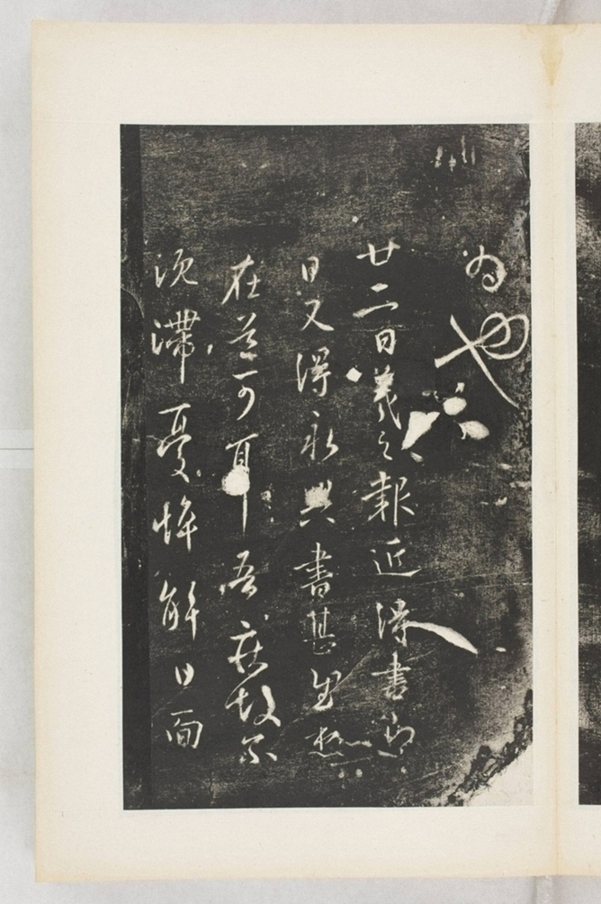 為也
廿二日羲之報近得書即
日又得永興書甚慰想
在道可耳吾疾故爾
沉滯憂悴解日面